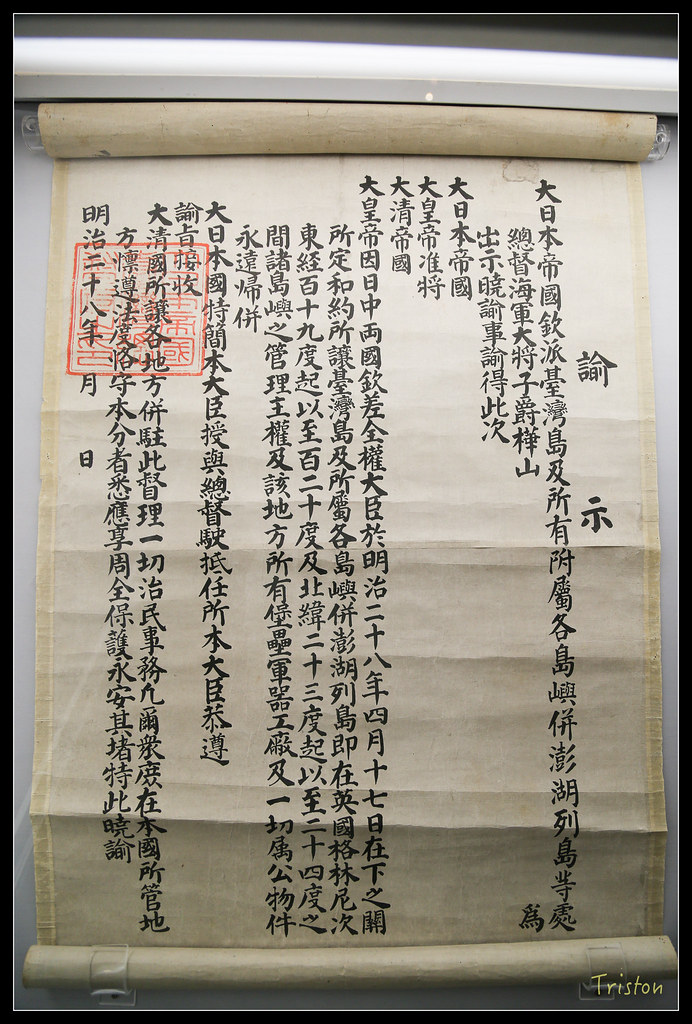 諭示
大日本帝國欽派臺灣島及所有附屬各島嶼併澎湖列島等處
總督海軍大將子爵樺山 為
出示曉諭事諭得此次
大日本帝國
大皇帝准將
大清帝國
大皇帝因日中両國欽差全權大臣於明治二十八年四月十七日在下之關
所定和約所讓臺灣島及所屬各島嶼併澎湖列島即在英國格林尼次
東経百十九度起以至百二十度及北緯二十三度起以至二十四度之
間諸島嶼之管理主權及該地方所有堡壘軍器工廠及一切属公物件
永遠歸併
大日本國特簡本大臣授與總督駛抵任所本大臣恭遵
諭旨接收
大清國所讓各地方併駐此督理一切治民事務凢爾衆庻在本國所管地
方懍遵法度恪守本分者悉應享周全保護永安其堵特此曉諭
明治二十八年 月 日
Triston